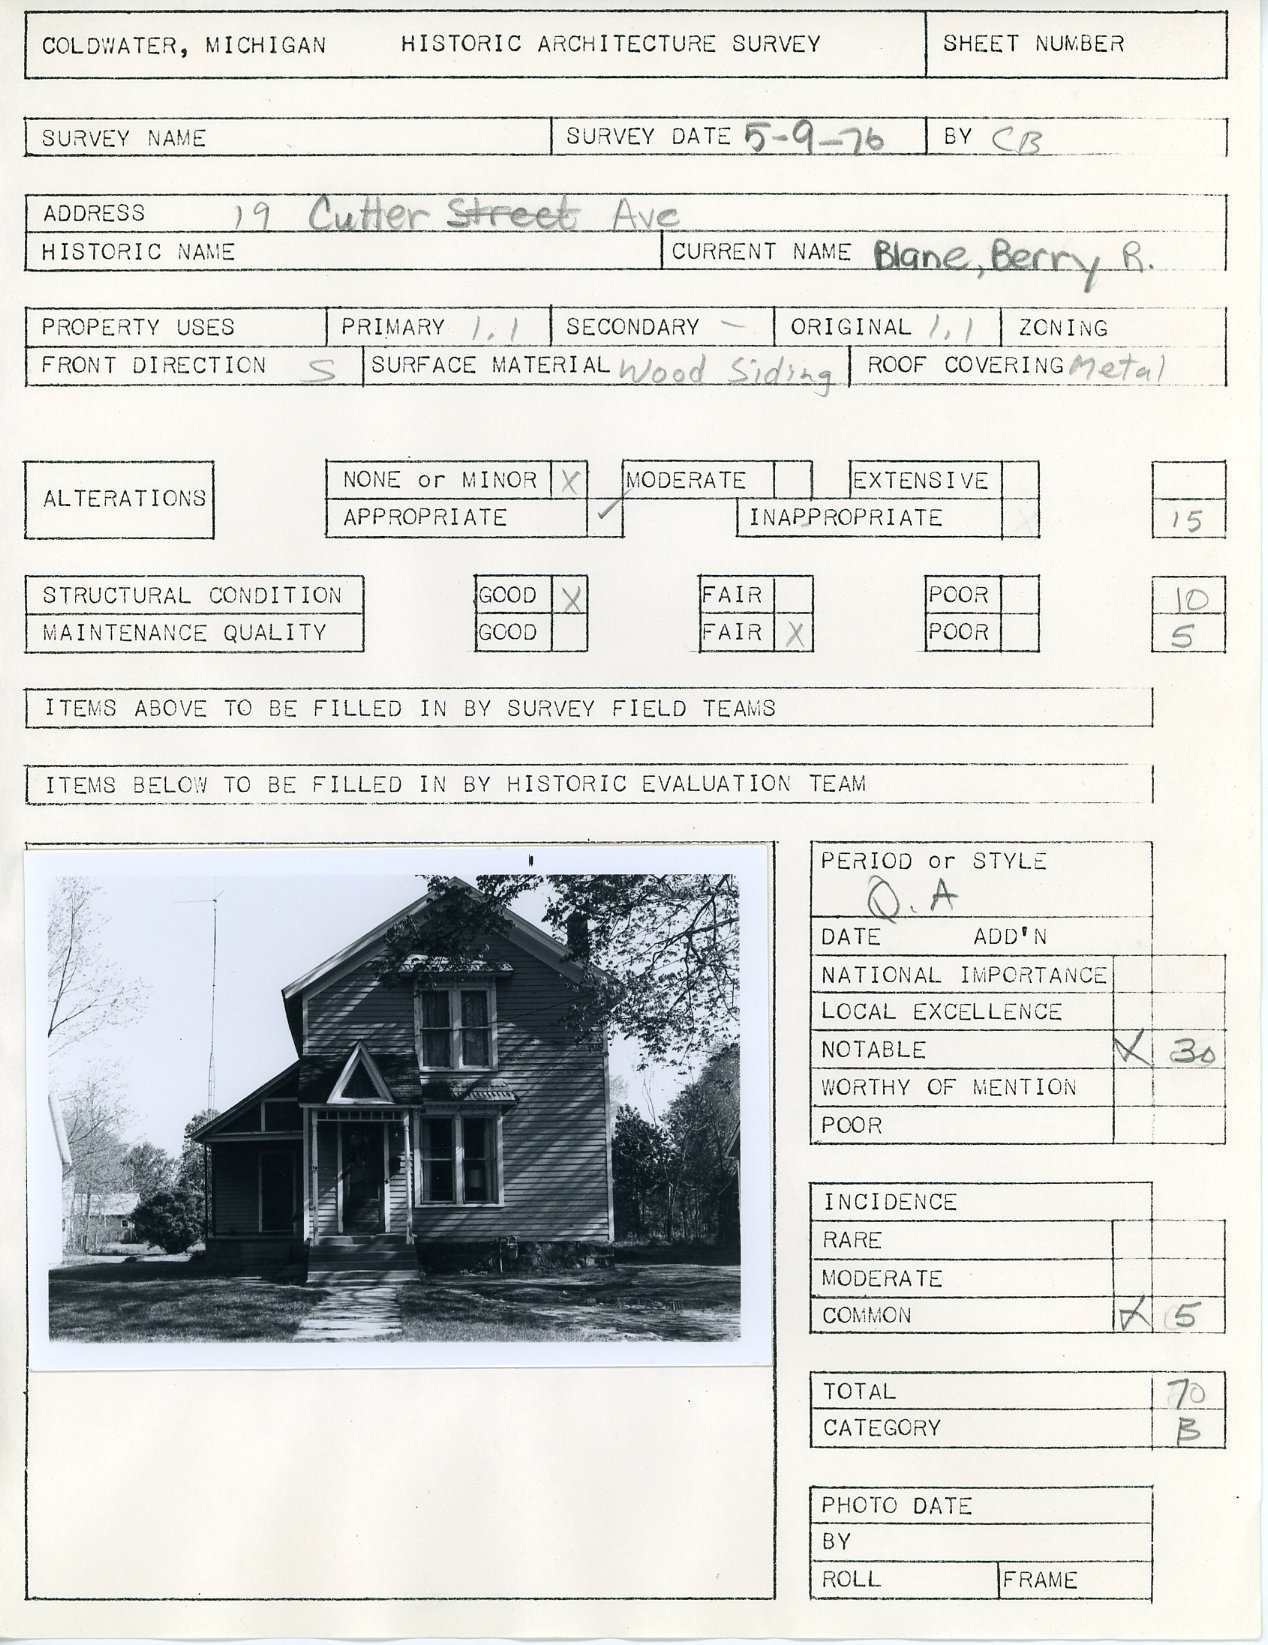 COLDWATER, MICHIGAN HISTORIC ARCHITECTURE SURVEY SHEET NUMBER
SURVEY NAME SURVEY DATE 5-9-76 BY CB
ADDRESS 19 Cutter Street Ave
HISTORIC NAME CURRENT NAME Blane, Berry R.
PROPERTY USES PRIMARY 1.1 SECONDARY – ORIGINAL 1.1 ZONING
FRONT DIRECTION S SURFACE MATERIAL Wood Siding ROOF COVERING Metal
ALTERATIONS
NONE or MINOR X MODERATE EXTENSIVE
APPROPRIATE ✓ INAPPROPRIATE 15
STRUCTURAL CONDITION GOOD X FAIR POOR 10
MAINTENANCE QUALITY GOOD FAIR X POOR 5
ITEMS ABOVE TO BE FILLED IN BY SURVEY FIELD TEAMS
ITEMS BELOW TO BE FILLED IN BY HISTORIC EVALUATION TEAM
PERIOD or STYLE
Q.A
DATE ADD'N
NATIONAL IMPORTANCE
LOCAL EXCELLENCE
NOTABLE X 30
WORTHY OF MENTION
POOR
INCIDENCE
RARE
MODERATE
COMMON X 5
TOTAL 70
CATEGORY B
PHOTO DATE
BY
ROLL FRAME